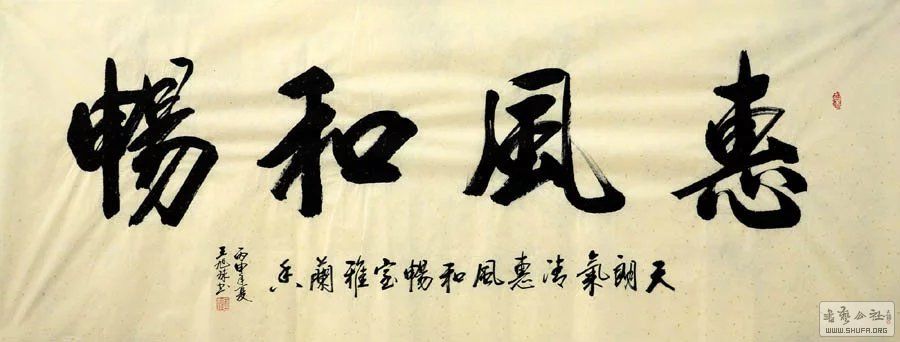 惠風和暢
天朗氣清惠風和暢室雅蘭香
丙申年夏
王旭书
書藝公社
WWW.SHUFA.ORG